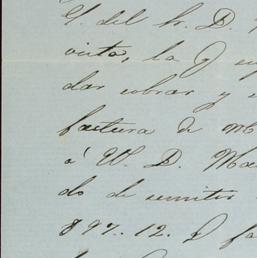 S. del Sr. D.
vista, la q
dar cobrar y
factura de m
á W. D. Ma
do de remitir
$ 97.12.